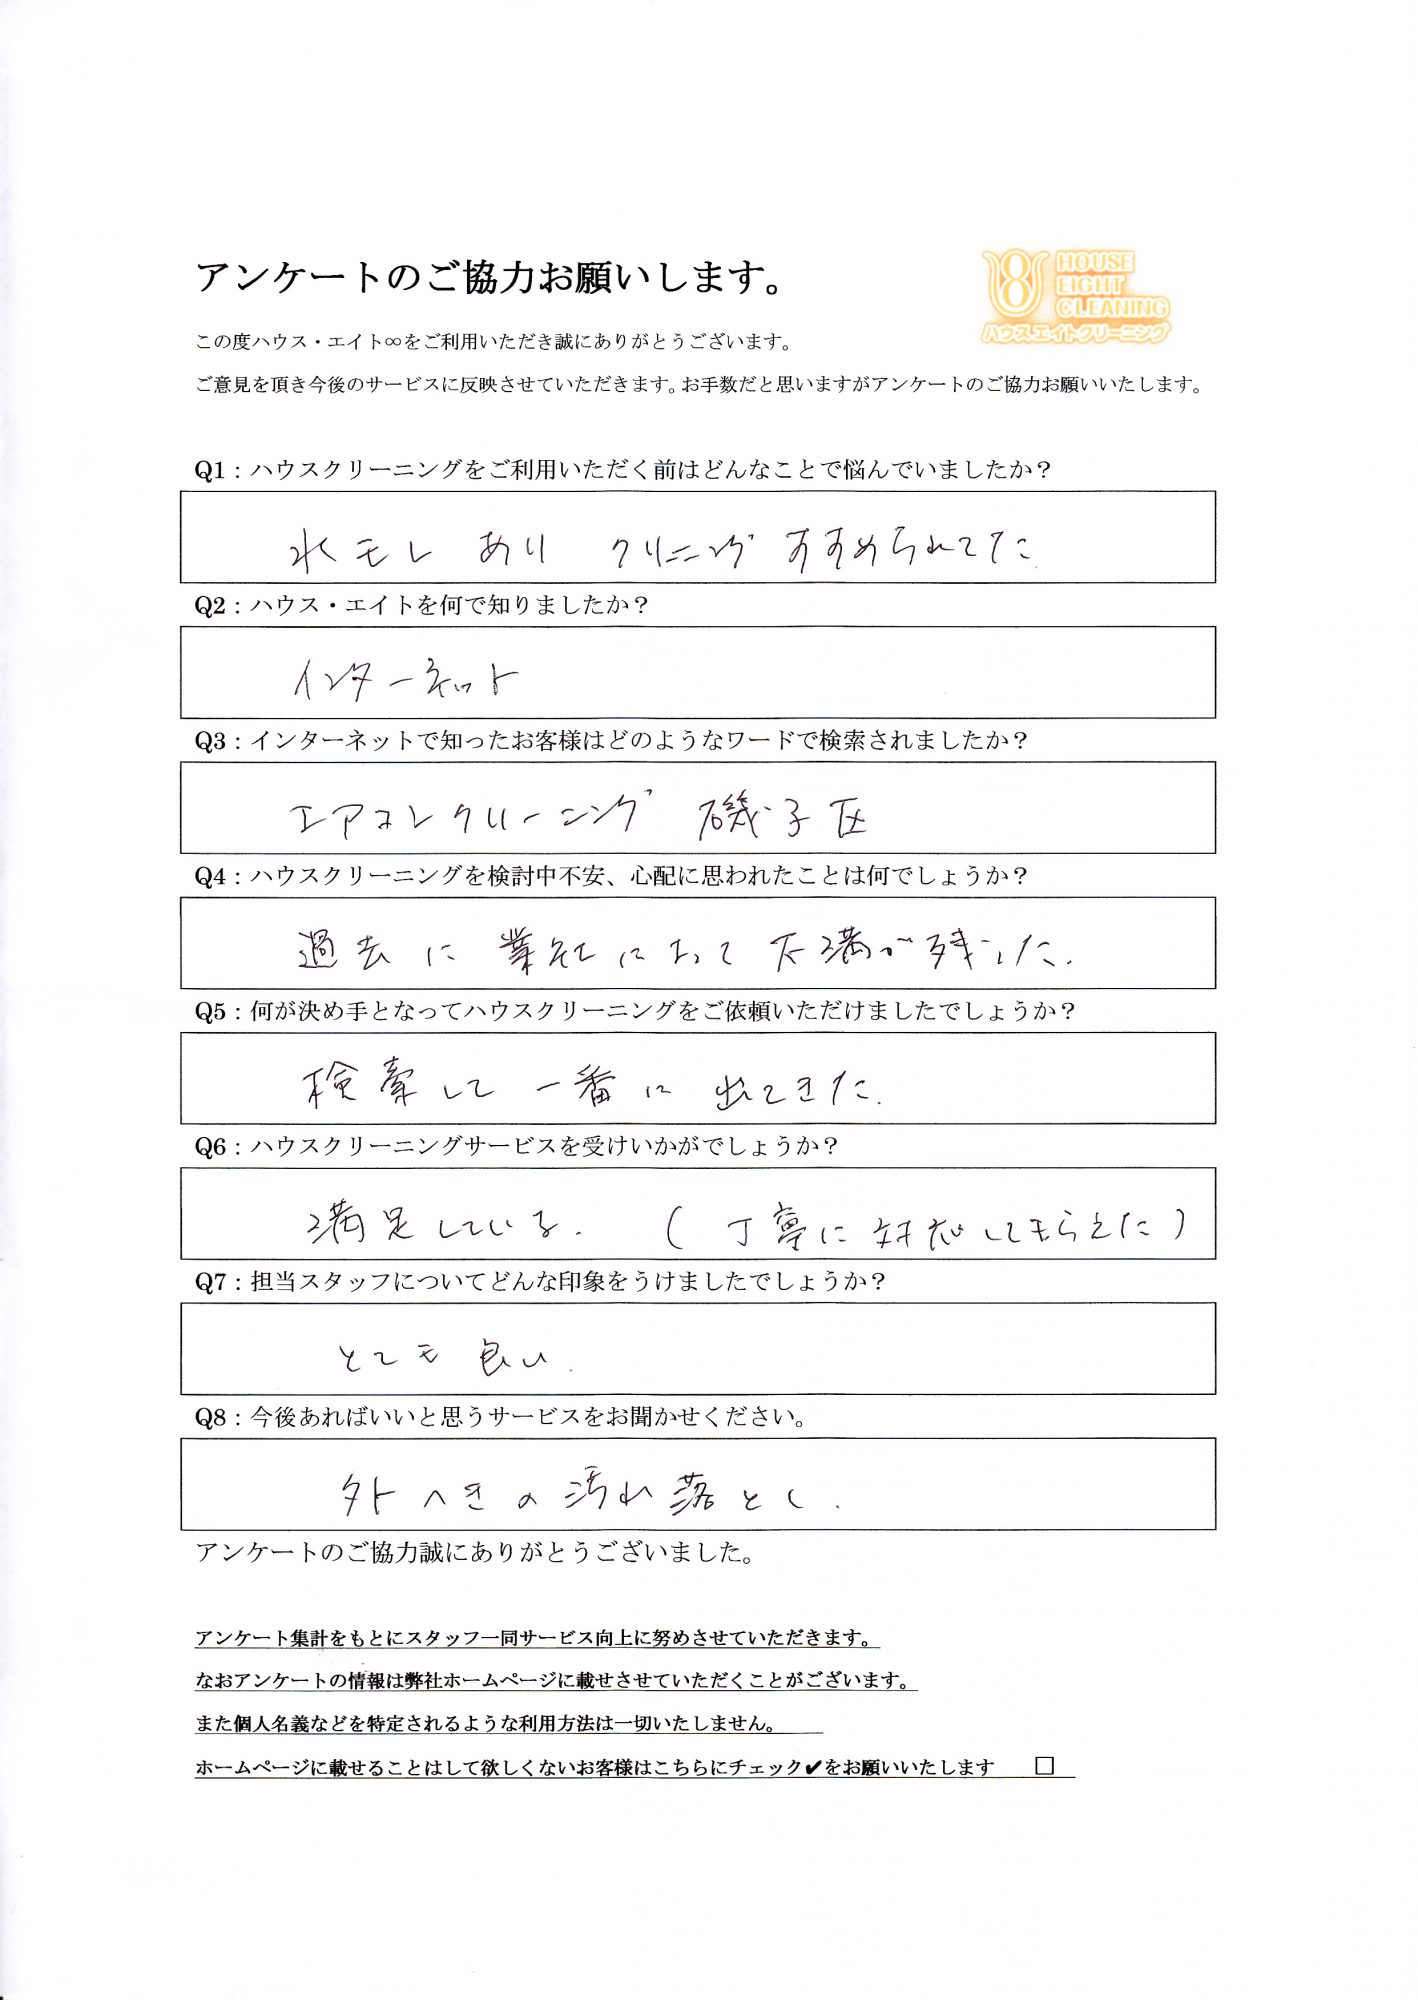 アンケートのご協力お願いします。
HOUSE
EIGHT
CLEANING
ハウスエイトクリーニング
この度ハウス・エイト∞をご利用いただき誠にありがとうございます。
ご意見を頂き今後のサービスに反映させていただきます。お手数だと思いますがアンケートのご協力お願いいたします。
Q1：ハウスクリーニングをご利用いただく前はどんなことで悩んでいましたか？
水モレ あり クリニング すすめられてた
Q2：ハウス・エイトを何で知りましたか？
インターネット
Q3：インターネットで知ったお客様はどのようなワードで検索されましたか？
エアコンクリーニング 磯子区
Q4：ハウスクリーニングを検討中不安、心配に思われたことは何でしょうか？
過去に 業社によって 不満が残した.
Q5：何が決め手となってハウスクリーニングをご依頼いただけましたでしょうか？
検索して 一番に 出てきた.
Q6：ハウスクリーニングサービスを受けいかがでしょうか？
満足している. (丁寧に対応してもらえた)
Q7：担当スタッフについてどんな印象をうけましたでしょうか？
とても 良い.
Q8：今後あればいいと思うサービスをお聞かせください。
外へきの汚れ落とし.
アンケートのご協力誠にありがとうございました。
アンケート集計をもとにスタッフ一同サービス向上に努めさせていただきます。
なおアンケートの情報は弊社ホームページに載せさせていただくことがございます。
また個人名義などを特定されるような利用方法は一切いたしません。
ホームページに載せることはして欲しくないお客様はこちらにチェック✔をお願いいたします □